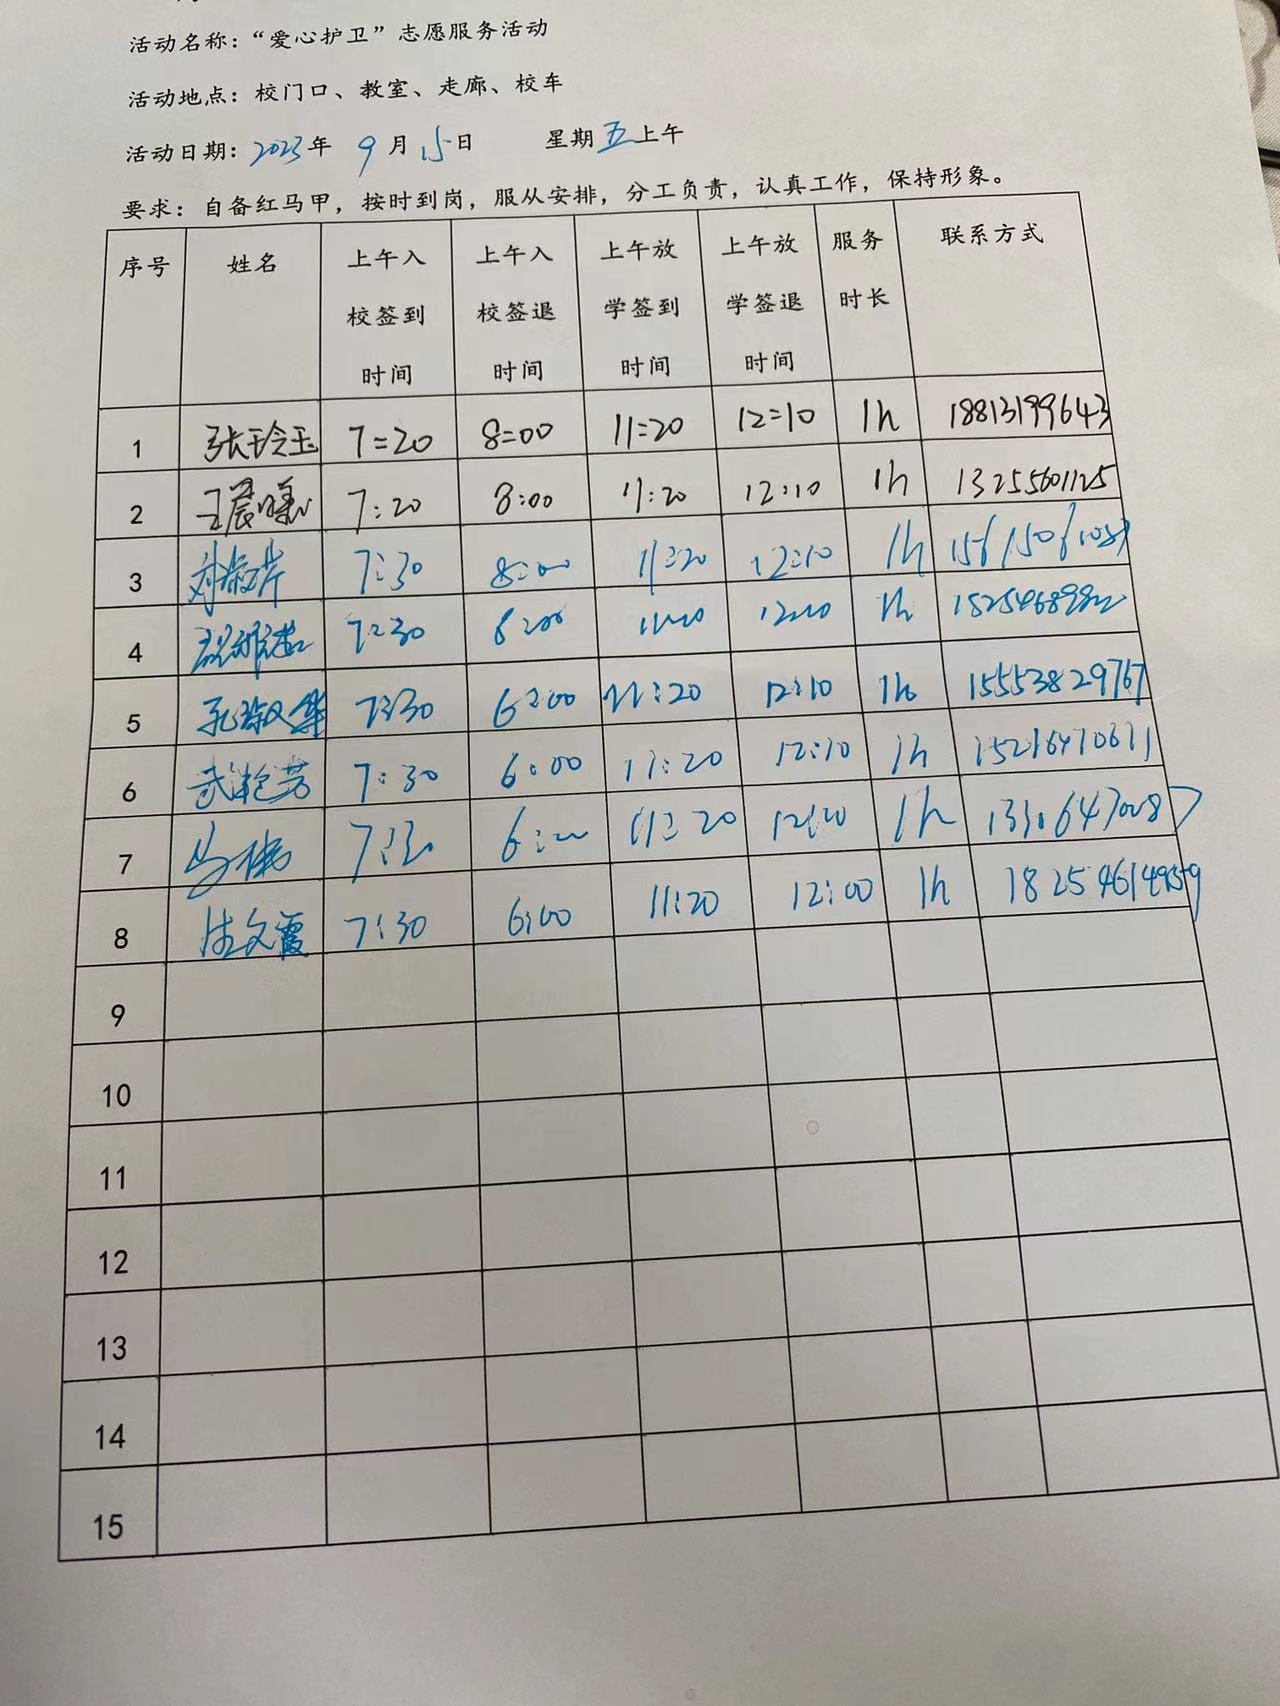 活动名称：“爱心护卫”志愿服务活动
活动地点：校门口、教室、走廊、校车
活动日期：2023年 9月15日 星期五上午
要求：自备红马甲，按时到岗，服从安排，分工负责，认真工作，保持形象。
序号 姓名 上午入校签到时间 上午入校签退时间 上午放学签到时间 上午放学签退时间 服务时长 联系方式
1 张玲玉 7:20 8:00 11:20 12:10 1h 18813199643
2 王晨曦 7:20 8:00 11:20 12:10 1h 13255601125
3 7:30 8:00 11:20 12:10 1h
4 7:30 8:00 11:20 1h
5 7:30 6:00 11:20 12:10 1h 15553829767
6 7:30 6:00 11:20 12:10 1h 15216470611
7 马伟 7:30 6:00 11:20 1h
8 7:30 6:00 11:20 12:00 1h
9
10
11
12
13
14
15